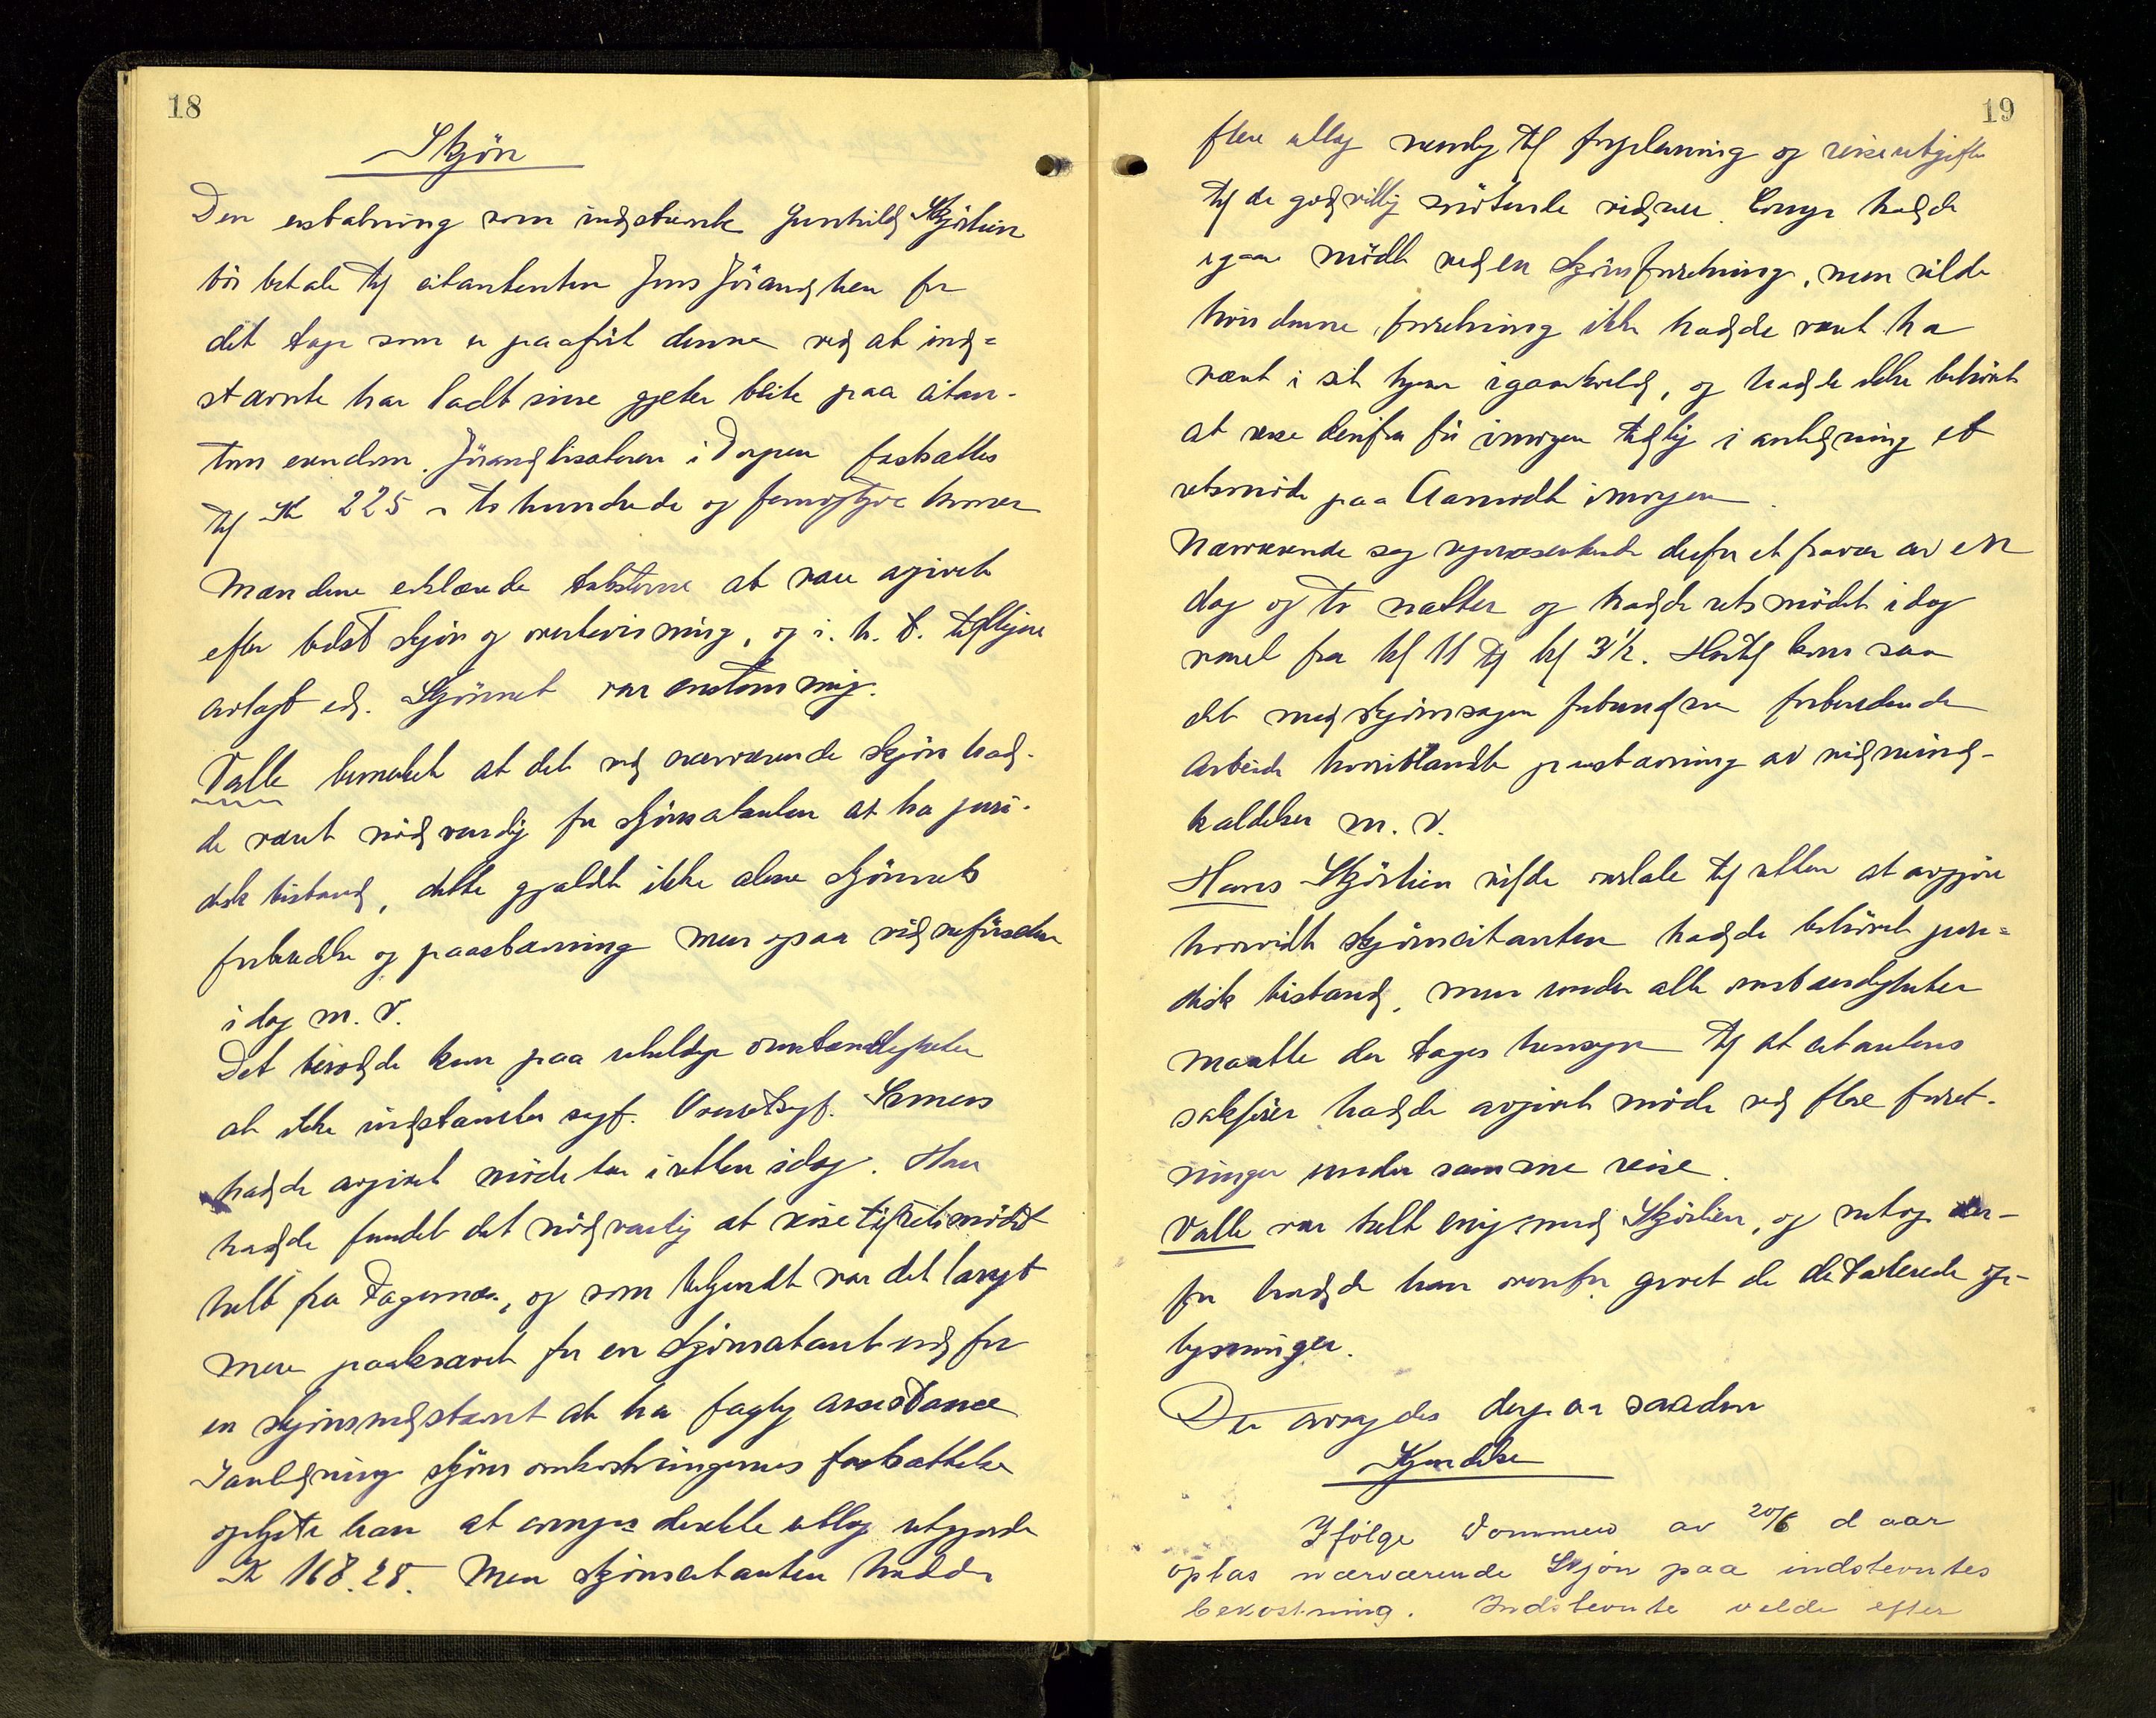 18
Skjön
Den erstatning som indstevnte Gunhild Skjörlien
bör betale til citantenten Jens Jörandlien for
det tap som er paafört denne ved at ind=
stævnte har ladt sine gjeter beite paa citan-
tens eiendom. Jörandlisæteren i fastsættes
til Kr 225 - to hundrede og femogtyve kroner
Mændene erklærede taksterne at være avgivet
efter bedst skjön og overbevisning, og i. h. t. tidligere
avlagt ed. Skjönnet var enstemmig.
Valle bemerket at det ved nærværende skjön had-
de været nödvendig for skjönscitanten at ha juri-
disk bistand, dette gjældt ikke alene skjönnets
forberedelse og paastævning men ogsaa vidneförselen
idag m. v.
Det berodde kun paa uheldige omstændigheter
at ikke indstævntes sagf. Overretssagf.
hadde avgivet möte her i retten idag. Han
hadde fundet det nödvendig at reise til retsmödet
helt fra Fagernes, og som bekjendt var det langt
mere paakrævet for en skjönscitant end for
en skjönsindstevnt at ha faglig assistance
I anledning skjönsomkostningernes fastsættelse
oplyste han at direkte utlæg utgjorde
Kr 168.28. Men skjönscitanten hadde
19
flere utlæg nemlig til forpleining og reiseutgifter
til de godvillig mötende vidner. hadde
igaar mödt ved en skjönsforretning, men vilde
hvis denne forretning ikke hadde været ha
været i sit hjem igaarkveld, og hadde ikke behövet
at reise derifra för imorgen tidlig i anledning et
retsmöte paa Aamodt imorgen.
Nærværende sag repræsenterede derfor et fravær av en
dag og to nætter og hadde retsmödet idag
varet fra kl 11 til kl 3½. Hertil kom saa
det med skjönssagen forbundne forberedende
Arbeide hvoriblandt paastævning av vidneind-
kaldelser m. v.
Hans Skjörlien vilde overlate til retten at avgjöre
hvorvidt skjönscitanten hadde behövet juri=
disk bistand, men under alle omstændigheter
maatte der tages hensyn til at citantens
sakförer hadde avgivet möde ved flere forret-
ninger under samme reise.
Valle var helt enig med Skjörlien, og netop der-
for hadde han ovenfor givet de detaljerede op-
lysninger.
Der avsagdes derpaa saadan
Kjendelse
Ifölge dommen av 20/6 d aar
optas nærværende Skjön paa indstevntes
bekostning. Indstevnte vilde efter